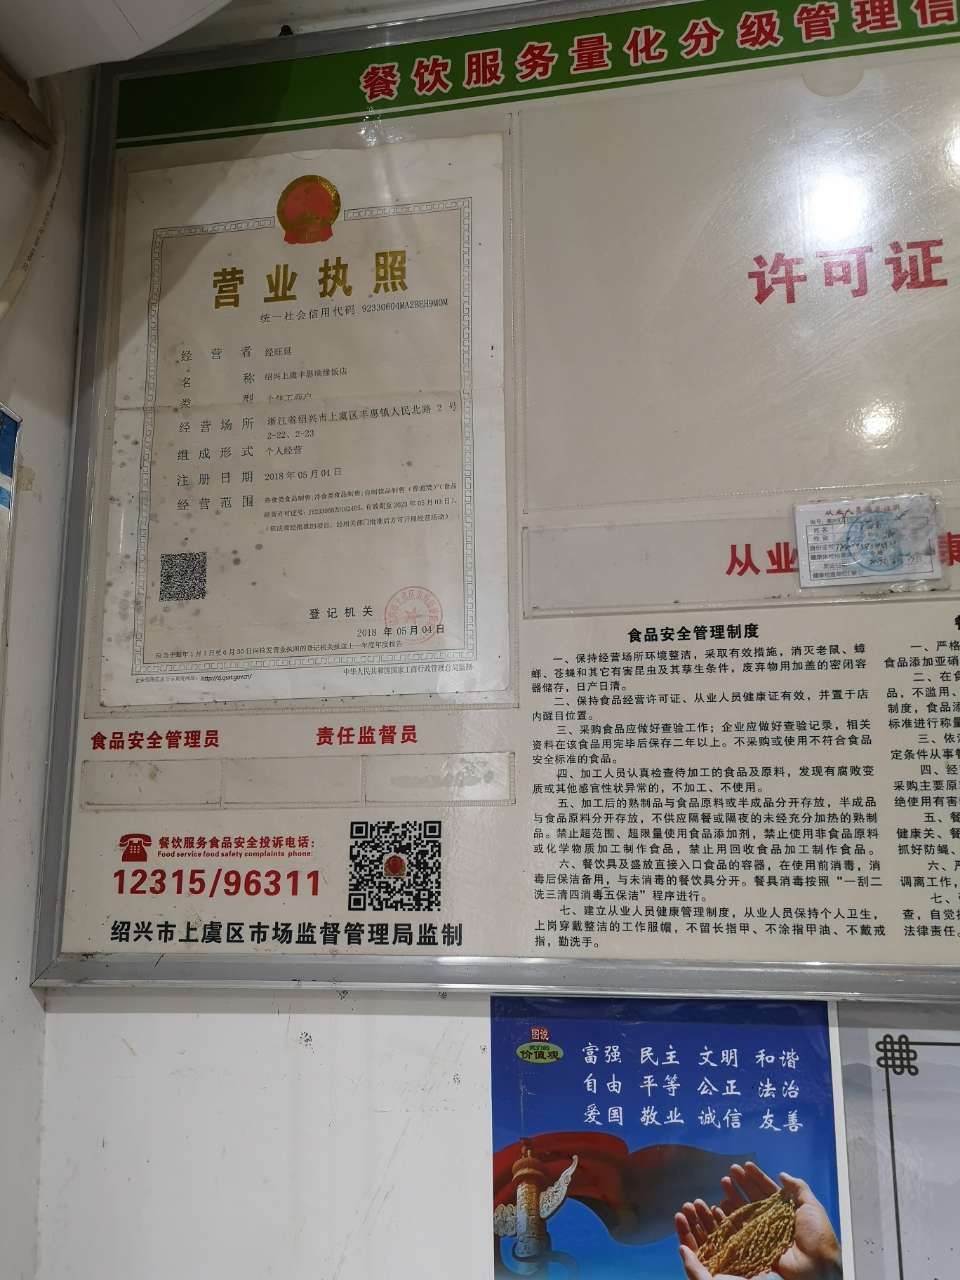 餐饮服务量化分级管理信
营业执照
统一社会信用代码 92330604MA2BEH9W0M
经营者 经旺冠
名称 绍兴上虞丰惠 饭店
类型 个体工商户
经营场所 浙江省绍兴市上虞区丰惠镇人民北路 2 号
2-22、2-23
组成形式 个人经营
注册日期 2018 年 05 月 04 日
经营范围 热食类食品制售;冷食类食品制售;自制饮品制售
(依法须经批准的项目,经相关部门批准后方可开展经营活动)
登记机关
2018 年 05 月 04 日
应当于每年1月1日至6月30日向核发营业执照的登记机关报送上一年度年度报告
中华人民共和国国家工商行政管理总局监制
许可证
从业 康
从业人员健康证明
食品安全管理员
责任监督员
餐饮服务食品安全投诉电话:
Food service food safety complaints phone:
12315/96311
绍兴市上虞区市场监督管理局监制
食品安全管理制度
一、保持经营场所环境整洁,采取有效措施,消灭老鼠、蟑
螂、苍蝇和其它有害昆虫及其孳生条件,废弃物用加盖的密闭容
器储存,日产日清。
二、保持食品经营许可证、从业人员健康证有效,并置于店
内醒目位置。
三、采购食品应做好查验工作;企业应做好查验记录,相关
资料在该食品用完毕后保存二年以上。不采购或使用不符合食品
安全标准的食品。
四、加工人员认真检查待加工的食品及原料,发现有腐败变
质或其他感官性状异常的,不加工、不使用。
五、加工后的熟制品与食品原料或半成品分开存放,半成品
与食品原料分开存放,不供应隔餐或隔夜的未经充分加热的熟制
品。禁止超范围、超限量使用食品添加剂,禁止使用非食品原料
或化学物质加工制作食品,禁止用回收食品加工制作食品。
六、餐饮具及盛放直接入口食品的容器,在使用前消毒,消
毒后保洁备用,与未消毒的餐饮具分开。餐具消毒按照“一刮二
洗三清四消毒五保洁”程序进行。
七、建立从业人员健康管理制度,从业人员保持个人卫生,
上岗穿戴整洁的工作服帽,不留长指甲、不涂指甲油、不戴戒
指,勤洗手。
一、严格
食品添加亚硝
二、在食
品,不滥用、
制度,食品添
标准进行称量
三、依法
定条件从事餐
四、经
采购主要原
绝使用有害
五、餐
健康关、餐
抓好防蝇、
六、严
调离工作,
七、
查,自觉接
法律责任。
国说
我们的
价值观
富强 民主 文明 和谐
自由 平等 公正 法治
爱国 敬业 诚信 友善